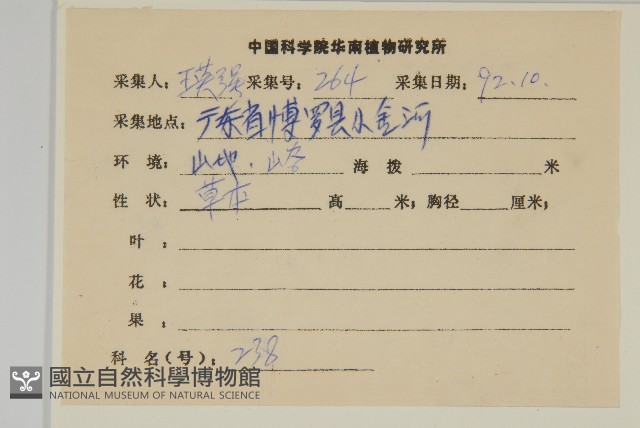 中国科学院华南植物研究所
采集人: 王英强 采集号: 264 采集日期: 92.10.
采集地点: 广东省博罗县小金河
环 境: 山地.山谷 海 拨 米
性 状: 草本 高 米; 胸径 厘米;
叶 :
花 :
果 :
科 名(号): 238
國立自然科學博物館
NATIONAL MUSEUM OF NATURAL SCIENCE